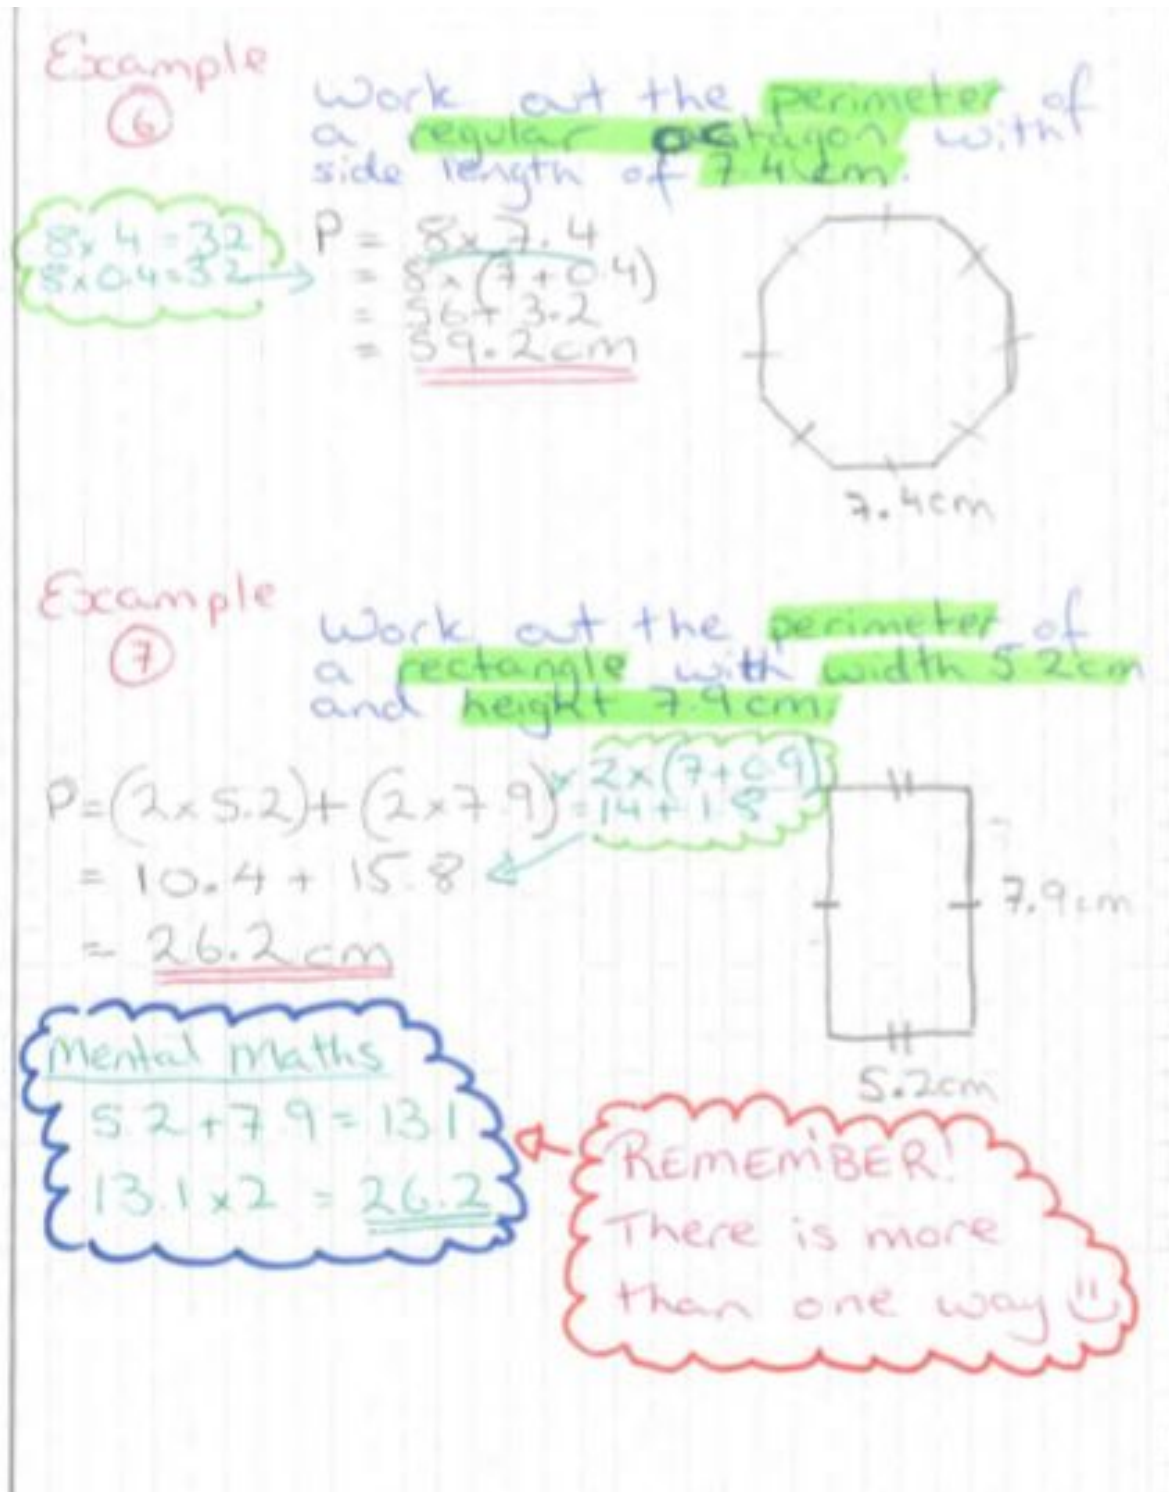 Example
6
Work out the perimeter of
a regular octagon with
side length of 7.4cm.
8x 4 = 32
8x0.4=3.2
P = 8x7.4
= 8x(7+0.4)
= 56+ 3.2
= 59.2cm
7.4cm
Example
7
Work out the perimeter of
a rectangle with width 5.2cm
and height 7.9cm.
P=(2x5.2)+(2x7.9)
2x(7+0.9)
=14+1.8
= 10.4 + 15.8
= 26.2cm
7.9cm
5.2cm
Mental Maths
5.2+7.9=13.1
13.1x2 = 26.2
REMEMBER!
There is more
than one way